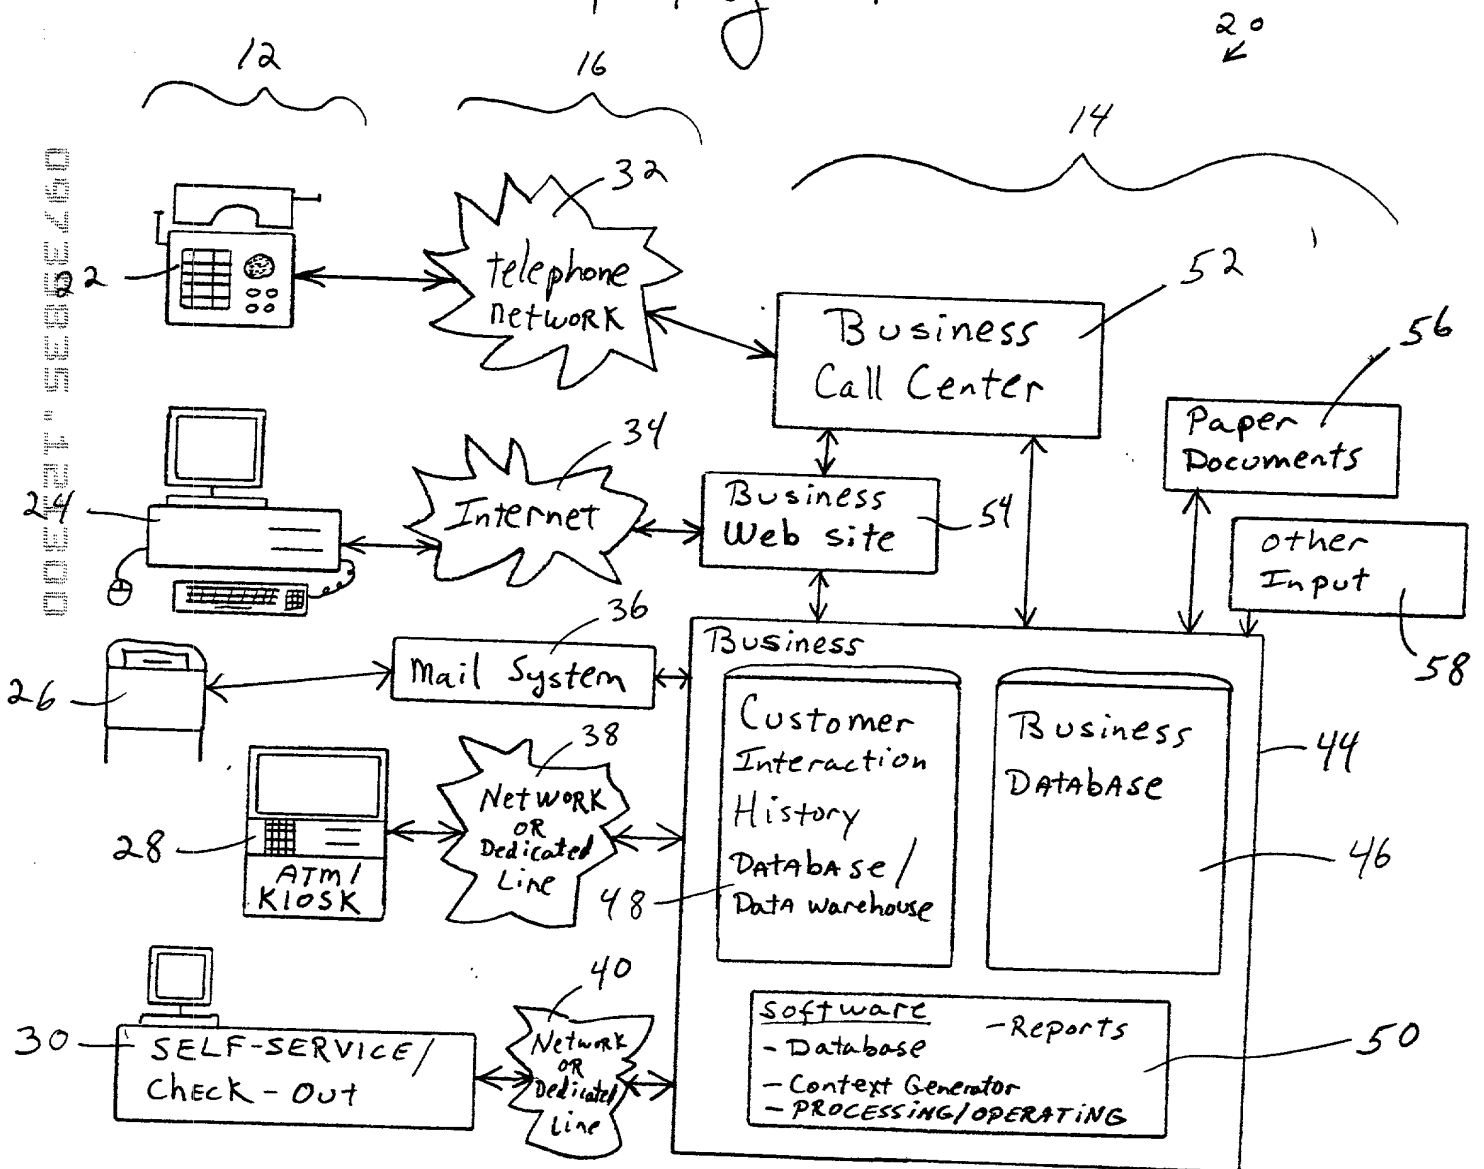 20
12
16
14
32
22
telephone
network
52
Business
Call Center
56
Paper
Documents
34
24
Internet
Business
Web site
54
other
Input
58
36
26
Mail System
Business
Customer
Interaction
History
DATABASE/
Data warehouse
48
Business
DATABASE
44
46
38
28
Network
OR
Dedicated
Line
ATM/
KIOSK
40
30
SELF-SERVICE/
Check-Out
Network
OR
Dedicated
Line
Software
-Reports
-Database
-Context Generator
-PROCESSING/OPERATING
50